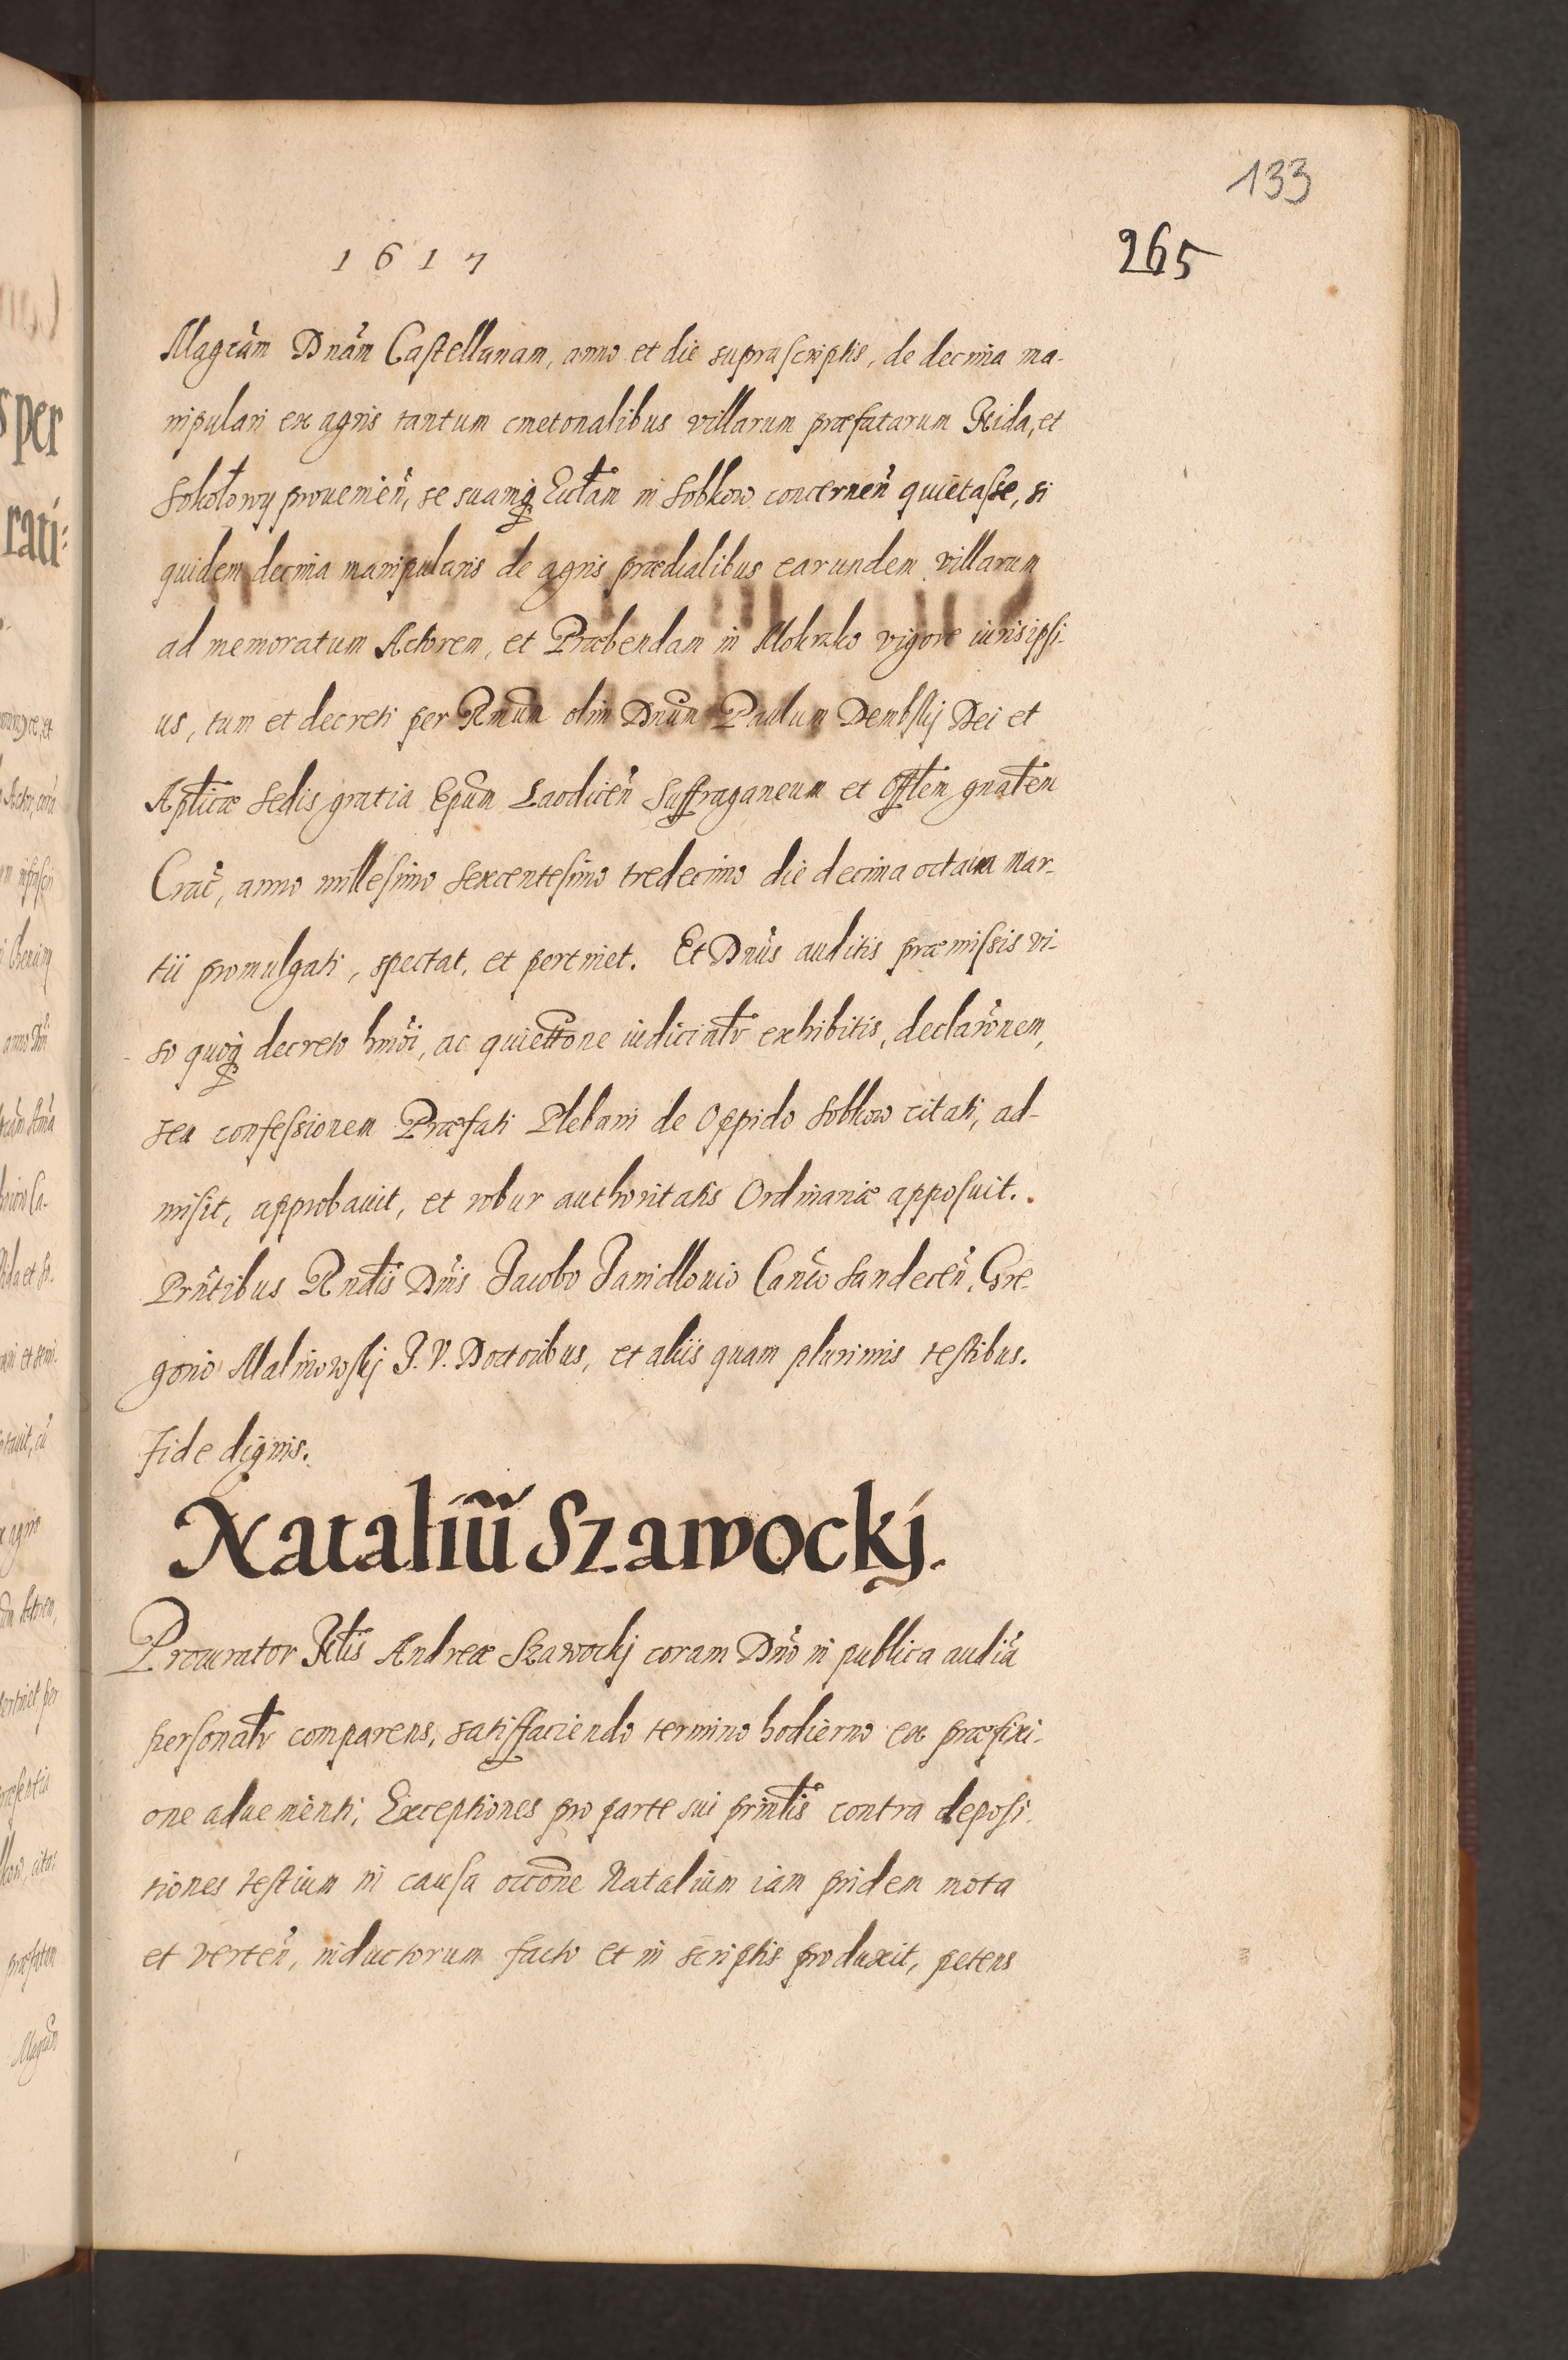 133
265
1617
Magcām Dnām Castellanam, anno et die suprascriptis, de decima ma-
nipulari ex agris tantum cmetonalibus villarum præfatarum Rzida, et
Sokołowy prouenieñ, se suamq̃ Ecctãm in Sobkow concerneñ quietasse, si
quidem decima manipularis de agris prædialibus earundem villarum
ad memoratum Actorem, et Præbendam in Mokrzko vigore iuris ipsi-
us, tum et decreti per Rmũm olim Dnũm Paulum Dembskj Dei et
Aptĩcæ Sedis gratia Epũm Laodiceñ Suffraganeum et Offtẽm gnãtem
Crac̃, anno millesimo sexcentesimo tredecimo die decima octaua Mar-
tii promulgati, spectat, et pertinet. Et Dnũs auditis præmissis vi-
so quoq̃ decreto hmõi, ac quiettõne iudicialr̃ exhibitis, declarõnem,
seu confessionem Præfati Plebani de Oppido Sobkow citati, ad-
misit, approbauit, et robur authoritatis Ordinariæ apposuit.
Prñtibus Rndĩs Dnĩs Jacobo Janidlouio Canc̃o Sandeceñ, Gre-
gorio Malinowskj J. V. Doctoribus, et aliis quam plurimis testibus.
Fide dignis.
Nataliũ Szawockj.
Procurator Andreæ Szawockj coram Dnõ in publica audiã
personalr̃ comparens, satisfaciendo termino hodierno ex præfixi-
one aduenienti, Exceptiones pro parte sui prinlĩs contra deposi-
tiones testium in causa occõne Natalium iam pridem mota
et verteñ, inductorum facto et in scriptis produxit, petens